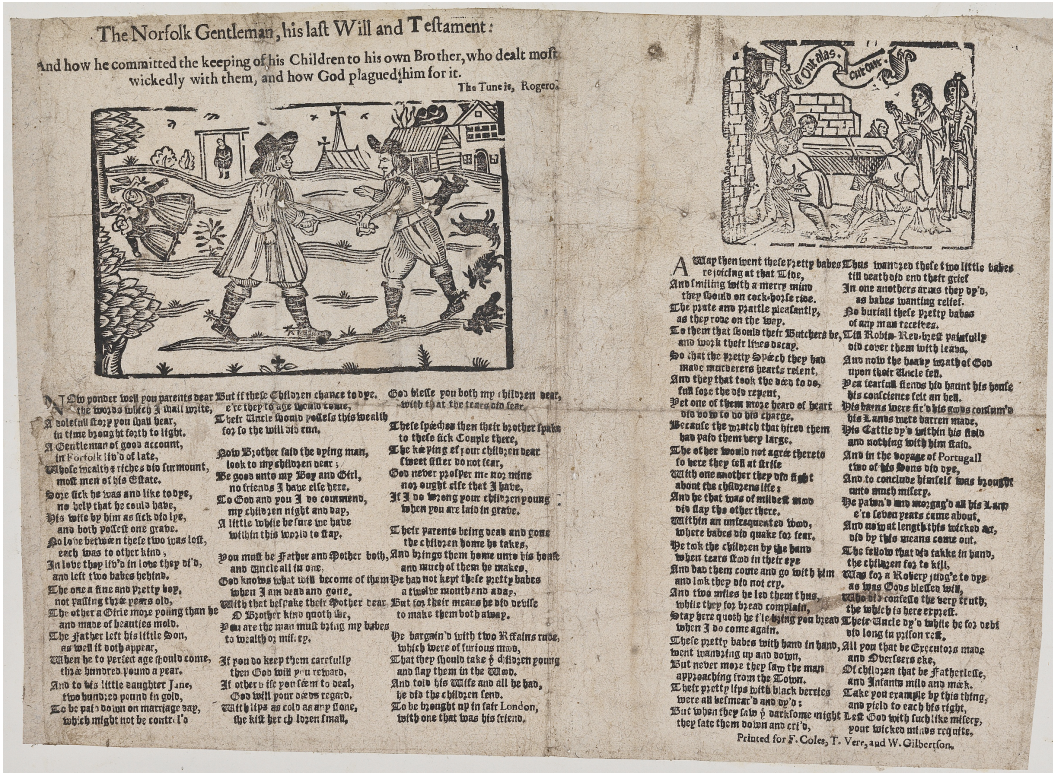 The Norfolk Gentleman, his last Will and Testament:
And how he committed the keeping of his Children to his own Brother, who dealt most
wickedly with them, and how God plagued him for it.
The Tune is, Rogero.
NOw ponder well you parents dear
the words which I shall write,
A dolefull story you shall hear,
in time brought forth to light.
A Gentleman of good account,
in Norfolk liv'd of late,
Whose wealth & riches did surmount,
most men of his Estate.
Sore sick he was and like to dye,
no help that he could have,
His wife by him as sick did lye,
and both possest one grave.
No love between these two was lost,
each was to other kind,
In love they liv'd in love they di'd,
and left two babes behind.
The one a fine and pretty boy,
not passing three years old,
The other a Girle more young than he
and made of beauties mold.
The Father left his little Son,
as well it doth appear,
When he to perfect age should come,
three hundred pound a year.
And to his little daughter Jane,
two hundred pound in gold,
To be paid down on marriage day,
which might not be control'd
But if these Children chance to dye,
e're they to age would come,
Their Uncle should possess this wealth
for so the will did run.
Now Brother said the dying man,
look to my children dear;
Be good unto my Boy and Girl,
no friends I have else here.
To God and you I do commend,
my children night and day,
A little while be sure we have
within this world to stay.
You must be Father and Mother both,
and Uncle all in one,
God knows what will become of them
when I am dead and gone.
With that bespake their Mother dear
O Brother kind quoth she,
You are the man must bring my babes
to wealth or misery.
If you do keep them carefully
then God will you reward,
If otherwise you seem to deal,
God will your deeds regard.
With lips as cold as any stone,
she kist her children small,
God blesse you both my children dear,
with that the tears did fall.
These speeches then their brother spake
to these sick Couple there,
The keeping of your children dear
sweet sister do not fear,
God never prosper me nor mine
nor ought else that I have,
If I do wrong your children young
when you are laid in grave.
Their parents being dead and gone
the children home he takes,
And brings them home unto his house
and much of them he makes,
He had not kept these pretty babes
a twelve month and a day,
But for their means he did devise
to make them both away.
He bargain'd with two Ruffains rude,
which were of furious mood,
That they should take ye children young
and slay them in the Wood.
And told his Wife and all he had,
he did the children send.
To be brought up in fair London,
with one that was his friend.
Out alas.
AWay then went these pretty babes
rejoicing at that Tide,
And smiling with a merry mind
they should on cock-horse ride.
The prate and prattle pleasantly,
as they rode on the way.
To them that should their Butchers be,
and work their lives decay.
So that the pretty Speech they had
made murderers hearts relent,
And they that took the deed to do,
full sore the did repent,
Yet one of them more heard of heart
did vow to do his charge.
Because the wretch that hired them
had paid them very large.
The other would not agree thereto
so here they fell at strife
With one another they did fight
about the childrens life:
And he that was of mildest mood
did slay the other there.
Within an unfrequented Wood,
where babes did quake for fear.
He took the children by the hand
when tears stood in their eye
And bad them come and go with him
and look they did not cry.
And two miles he led them thus,
while they for bread complain,
Stay here quoth he i'le bring you bread
when I do come again.
These pretty babes with hand in hand,
went wandring up and down,
But never more they saw the man
approaching from the Town.
Their pretty lips with black berries
were all besmear'd and dy'd:
But when they saw ye darksome night
they sate them down and cri'd,
Thus wandred these two little babes
till death did end their grief
In one anothers arms they dy'd,
as babes wanting relief.
No buriall these pretty babes
of any man receives.
Till Robin-Red-brest painfully
did cover them with leavs,
And now the heavy wrath of God
upon their Uncle fell.
Yea fearfull fiends did haunt his house
his conscience felt an hell.
His barns were fir'd his goods consum'd
his Lands were barren made,
His Cattle dy'd within his field
and nothing with him staid.
And in the voyage of Portugall
two of his Sons did dye,
And to conclude himself was brought
unto much misery.
He pawn'd and morgag'd all his Land
e're seven years came about,
And now at length this wicked act,
did by this means come out.
The fellow that did take in hand,
the children for to kill,
Was for a Robery judg'd to dye
as was Gods blessed will,
Who did confesse the very truth,
the which is here exprest.
Their Uncle dy'd while he for debt
did long in prison rest,
All you that be Executors made
and Overseers eke,
Of children that be Fatherlesse,
and Infants mild and meek.
Take you example by this thing,
and yield to each his right,
Lest God with such like misery,
your wicked minds requite,
Printed for F. Coles, T. Vere, and W. Gilbertson.